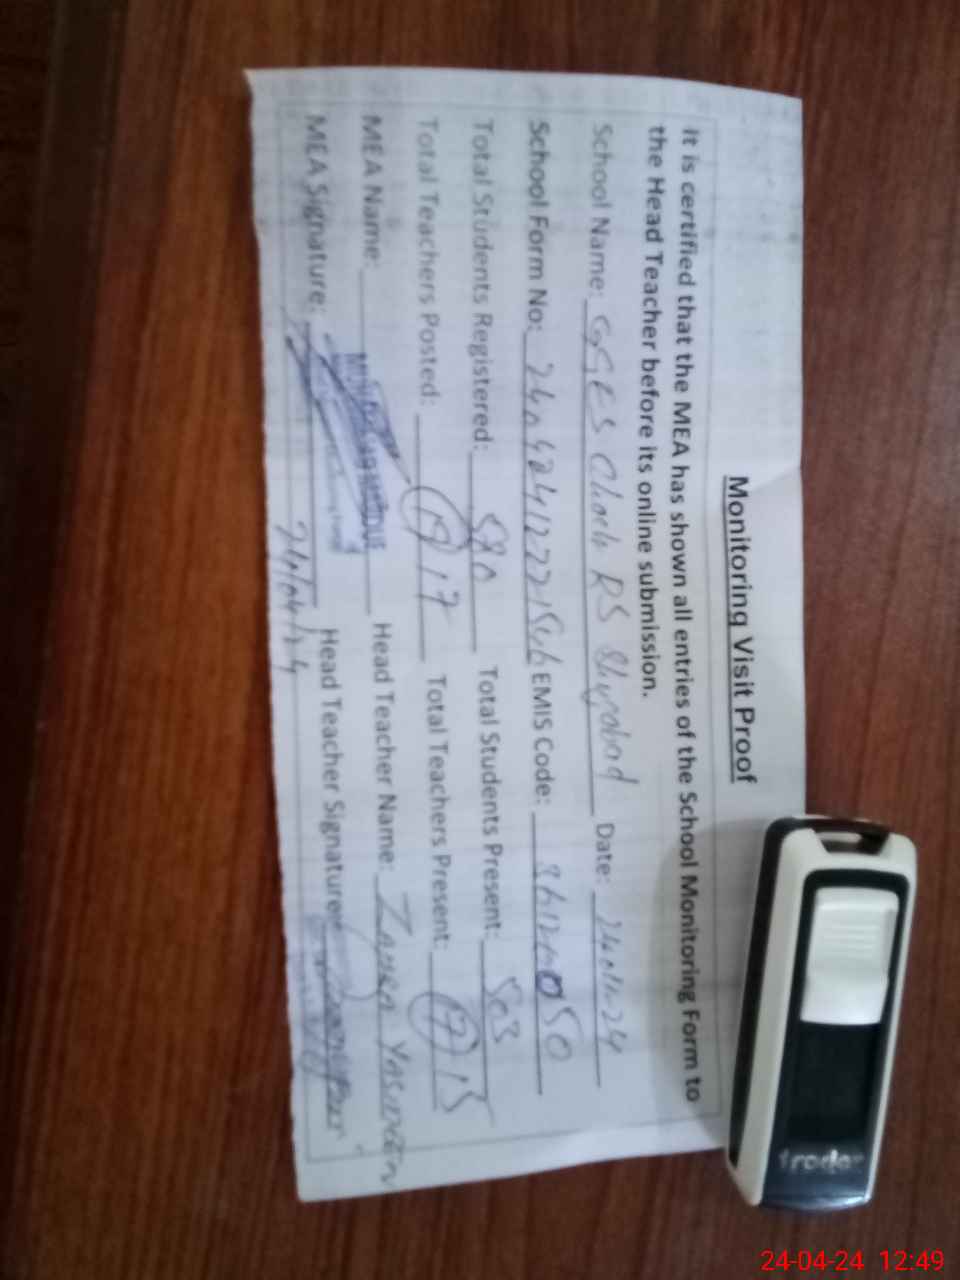 Monitoring Visit Proof
It is certified that the MEA has shown all entries of the School Monitoring Form to
the Head Teacher before its online submission.
School Name: GGES Chack RS Shujabad Date: 24-04-24
School Form No: EMIS Code:
Total Students Registered: 580 Total Students Present: 503
Total Teachers Posted: 19 17 Total Teachers Present: 17 15
MEA Name: Head Teacher Name: Zahra Yasmeen
MEA Signature: Head Teacher Signature:
24/04/24
trodor
24-04-24 12:49